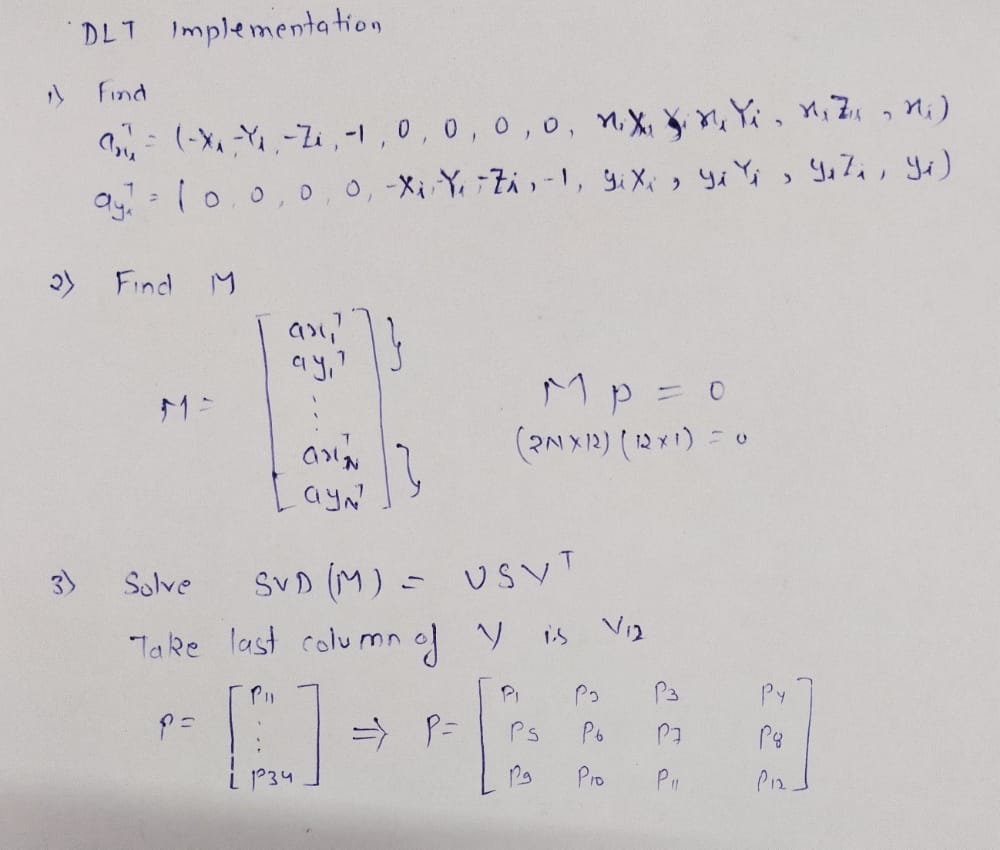 DLT Implementation
1) Find
aₓᵢᵀ = (-Xᵢ, -Yᵢ, -Zᵢ, -1, 0, 0, 0, 0, xᵢXᵢ, xᵢYᵢ, xᵢZᵢ, xᵢ)
ayᵢᵀ = (0, 0, 0, 0, -Xᵢ, -Yᵢ, -Zᵢ, -1, yᵢXᵢ, yᵢYᵢ, yᵢZᵢ, yᵢ)
2) Find M
M = [ ax₁ᵀ
ay₁ᵀ }
⋮
axNᵀ
ayNᵀ ] }
M p = 0
(2N×12) (12×1) = 0
3) Solve SVD (M) = USVᵀ
Take last column of V is V₁₂
p = [ p₁₁ ⋮ p₃₄ ] ⇒ P = [ p₁ p₂ p₃ p₄
p₅ p₆ p₇ p₈
p₉ p₁₀ p₁₁ p₁₂ ]